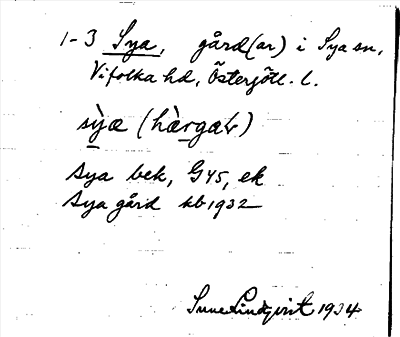 1-3 Sya, gård(ar) i Sya sn,
Vifolka hd, Östergötl. l.
sỳa (hàrgaɫ)
Sya bek, G45, ek
Sya gård kb 1932
Sune Lindqvist 1934